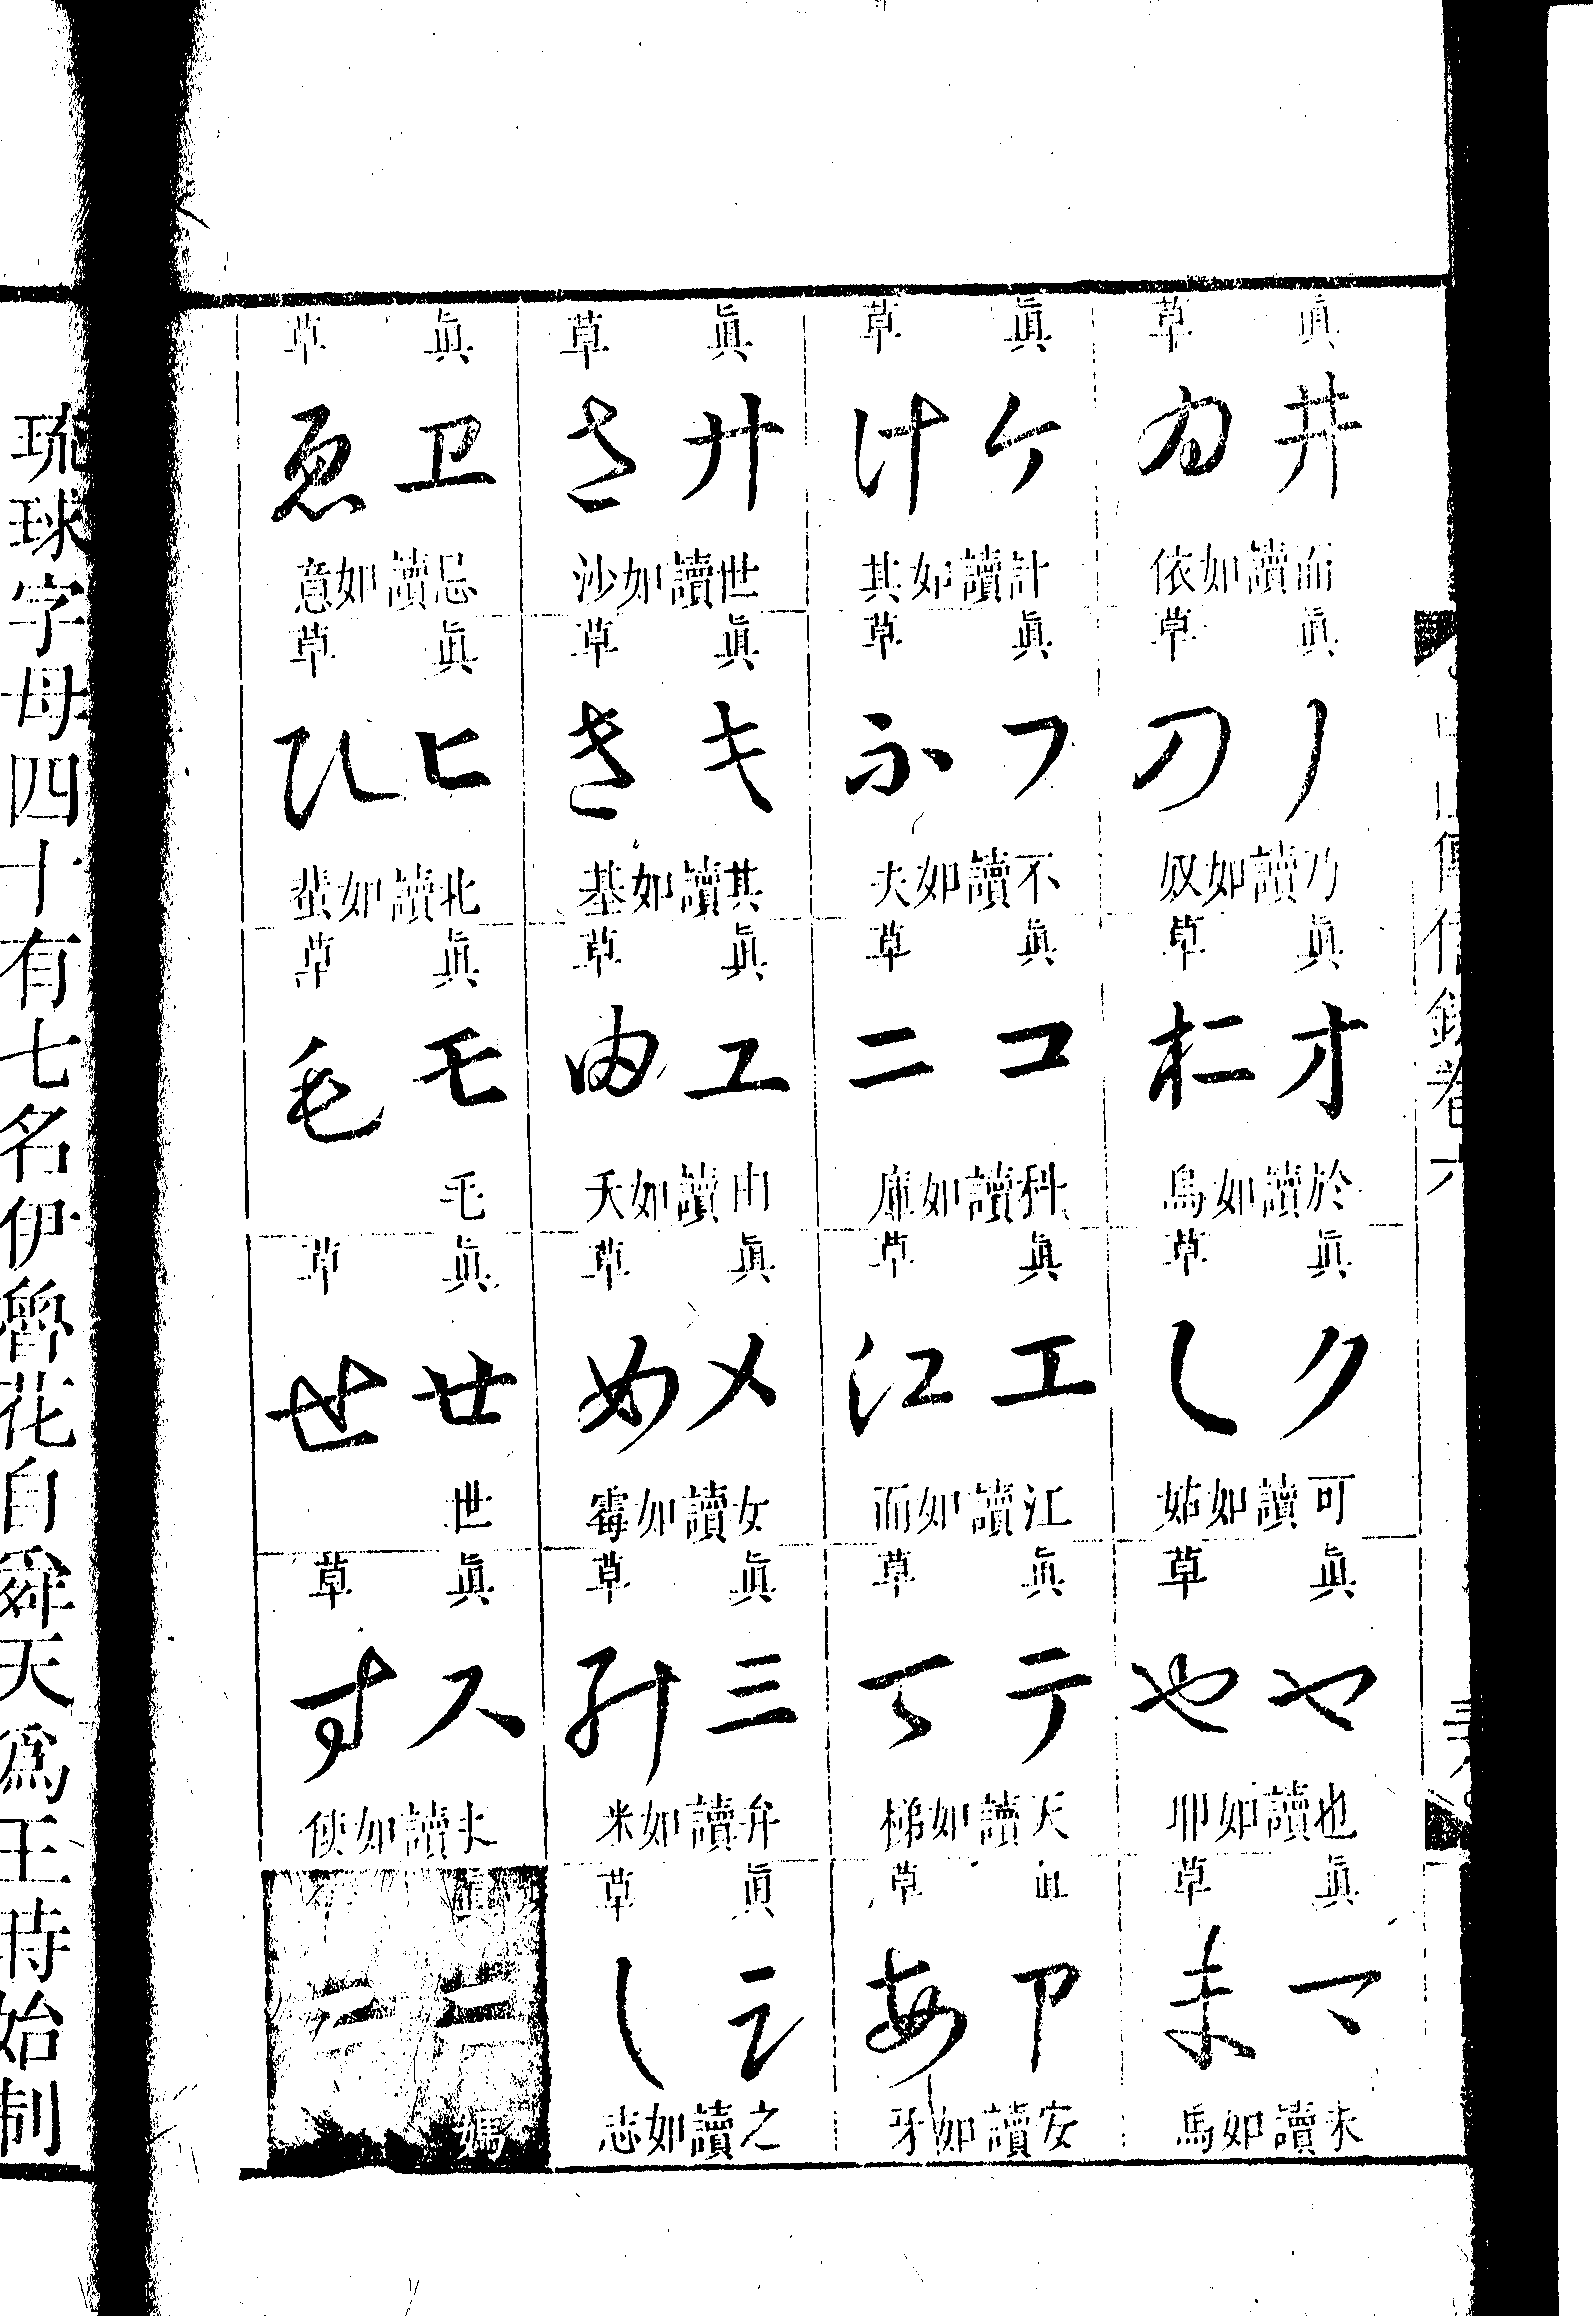 眞 草
井 ゐ
而讀如依
眞 草
ノ の
乃讀如奴
眞 草
オ 於
於讀如烏
眞 草
ク し
可讀如姑
眞 草
ヤ や
也讀如耶
眞 草
マ ま
末讀如馬
眞 草
ケ け
計讀如其
眞 草
フ ふ
不讀如夫
眞 草
コ ニ
科讀如庫
眞 草
エ 江
江讀如而
眞 草
テ て
天讀如梯
眞 草
ア あ
安讀如牙
眞 草
サ さ
世讀如沙
眞 草
キ き
其讀如基
眞 草
ユ ゆ
由讀如天
眞 草
メ め
女讀如霉
眞 草
三
弁讀如米
眞 草
し
之讀如志
眞 草
ヱ ゑ
忌讀如意
眞 草
ヒ ひ
北讀如蜚
眞 草
モ 毛
毛
眞 草
せ
世
眞 草
ス す
讀如使
眞
媽
琉球字母四十有七名伊魯花自舜天爲王時始制